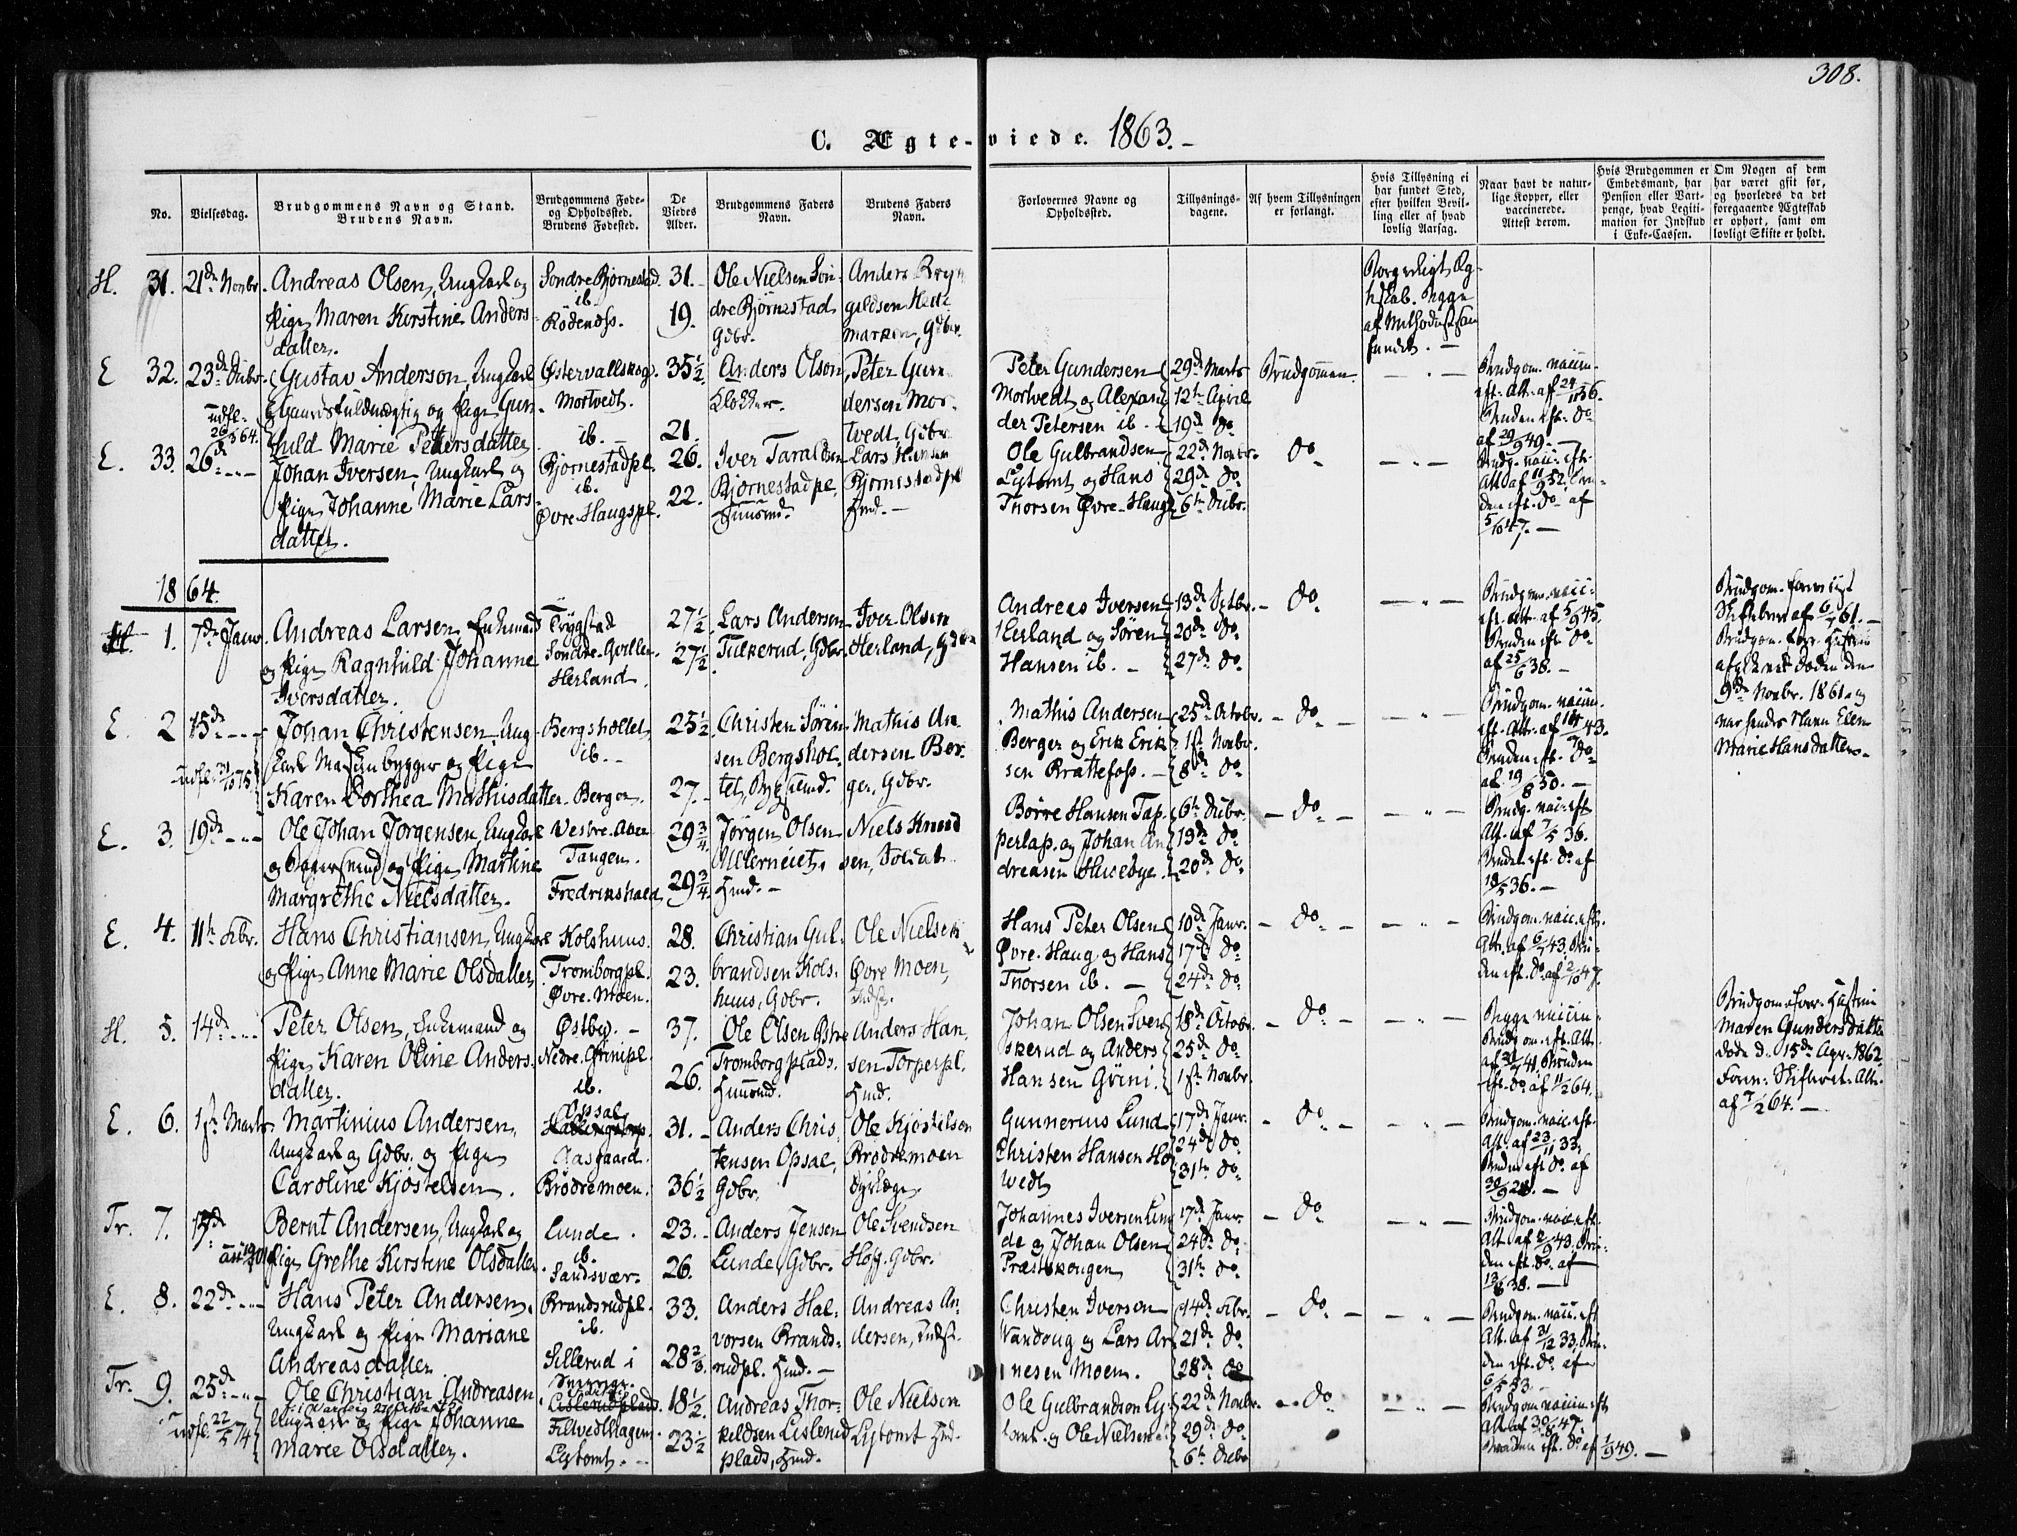 308.
C. Ægte-viede. 1863.-
No.
Vielsesdag.
Brudgommens Navn og Stand.
Brudens Navn.
Brudgommens Føde-
og Opholdssted.
Brudens Fødested.
De
Viedes
Alder.
Brudgommens Faders
Navn.
Brudens Faders
Navn.
Forlovernes Navne og
Opholdssted.
Tillysnings-
dagene.
Af hvem Tillysningen
er forlangt.
Hvis Tillysning ei
har fundet Sted,
efter hvilken Bevil-
ling eller af hvad
lovlig Aarsag.
Naar havt de natur-
lige Kopper, eller
vaccinerede.
Attest derom.
Hvis Brudgommen er
Embedsmand, har
Pension eller Vart-
penge, hvad Legiti-
mation for Indskud
i Enke-Cassen.
Om Nogen af dem
har været gift før,
og hvorledes da det
foregaaende Ægteskab
er ophørt, samt om
lovligt Skifte er holdt.
H. 31. 21de Novbr.
Andreas Olsen, Ungkarl og
Pige Maren Kirstine Anders-
datter.
Søndre Bjørnestad
ib.
Rødenæss.
31.
19.
Ole Nielsen Søn-
dre Bjørnestad
Gdbr.
Anders
gildsen
marken, Gdbr.
E 32. 23de Decbr.
udfl.
Gustav Anderson, Ungkarl
og Pige Gun-
huld Marie Petersdatter
Østervallskog
Mortvedt.
ib. -
35½
21.
Anders Olson,
Klokker.
Peter Gun-
dersen Mor-
tvedt, Gdbr.
Peter Gundersen
Mortvedt og Alexan-
der Petersen ib. -
29de Marts
12te April
19de do
Brudgommen.
Brudgom. vaccin.
eft. Att. af
Bruden eft. do
af 29/9 49. -
E. 33. 26de
Johan Iversen, Ungkarl og
Pige Johanne Marie Lars-
datter.
Bjørnestadpl.
ib.
Øvre-Haugspl.
26.
22.
Iver Taraldsen
Bjørnestadpl.
Huusmd.
Lars Hansen
Bjørnestadpl.
Hmd. -
Ole Gulbrandsen
Lystomt og Hans
Thorsen Øvre-Haug
22de Novbr.
29de do
6te Decbr.
do
Brudg. vacc. eft.
Att. af 11/9 52. Bru-
den eft. do af
5/10 47. -
1864.
H. 1. 7de Janr.
Andreas Larsen, Enkemand
og Pige Ragnhild Johanne
Iversdatter.
Trygstad
Søndre
Herland.
27½
27½
Lars Andersen
Tukerud, Gdbr.
Iver Olsen
Herland, Gdbr.
Andreas Iversen
Herland og Søren
Hansen ib. -
13de Decbr.
20de do
27de do
do
Brudgom. vacci-
eft. Att. af 5/9 45.
Bruden eft. do
af 25/6 38. -
Brudgom. foreviist
Skiftebrev af
9de Novbr. 1861. og
Marie Hansdatter.
E. 2 15de
udfl.
Johan Christensen, Ung-
karl Maskinbygger og Pige
Karen Dorthea Mathisdatter.
Bergsholtet,
ib. -
Berger.
25½
27.
Christen Søren-
sen Bergshol-
tet,
Mathis An-
dersen Ber-
ger, Gdbr.
Mathis Andersen
Berger og Erik Erik-
sen Brattefoss. -
25de Octobr.
1ste Novbr.
8de do
do
Brudgom. vaccin.
Bruden eft. do
af 19/8 50. -
E. 3. 19de
Ole Johan Jørgensen, Ungkarl
og Bagersvend og Pige Martine
Margrethe Nielsdatter.
Vestre-
Tangen.
Fredrikshald
29¾
29¾
Jørgen Olsen
Hmd. -
Niels Knud-
sen, Soldat
Børre Hansen Tap-
perlap. og Johan An-
dreasen Husebye.
6te Decbr.
13de do
20de do
do
Brudg. vacc. eft
Att. af 7/5 36.
Bruden eft. do af
18/5 36. -
E. 4. 11te Febr.
Hans Christiansen, Ungkarl
og Pige Anne Marie Olsdatter
Kolshuus.
Tromborgpl.
Øvre-Moen.
28.
23.
Christian Gul-
brandsen Kols-
huus, Gdbr.
Ole Nielsen
Øvre Moen,
Indst.
Hans Peter Olsen
Øvre-Haug og Hans
Thorsen ib. -
10de Janr.
17de do
24de do
do
Brudgom. vacc. eft.
Att. af 43. Bru-
den eft. do af 2/10 47.
H. 5. 14de
Peter Olsen, Enkemand og
Pige Karen Oline Anders-
datter.
Østby. -
Nedre-Grinipl.
ib.
37.
26.
Ole Olsen Østre
Tromborgplads.
Huusmd.
Anders Han-
sen Torperpl.
Hmd.
Johan Olsen Sven-
skerud og Anders
Hansen Grini.
18de Octobr.
25de do
1ste Novbr.
do
Begge vaccin-
Brudgom. eft. Att.
af 41, Bruden
eft. do af 11/2 64.
Brudgom. forr. Hustru
Maren Gundersdatter
døde d. 15de Apr. 1862.
Forev. Skifteret. Att.
af 7/2 64. -
E. 6. 1ste Marts.
Martinius Andersen,
Ungkarl og Gdbr. og Pige
Caroline Kjøstelsen.
Opsal
Aasgaard.
Brødremoen.
31. -
36½
Anders Chris-
tensen Opsal,
Gdbr.
Ole Kjøstelson
Brødremoen
Gunnerius Lund
Christen Hansen Ho-
vedt
17de Janr.
24de do
31te do
do
Brudgom. vacc. eft.
Att. af 23/11 33.
Bruden eft. do af
30/9 28. -
Tr. 7. 17de
Bernt Andersen, Ungkarl og
Pige Grethe Kirstine Olsdatter.
Lunde.
ib.
Sandsvær.
23. -
26.
Anders Jensen
Lunde, Gdbr.
Ole Svendsen
Hoff. Gdbr.
Johannes Iversen Lun-
de og Johan Olsen
Præstskougen
17de Janr.
24de do
31te do
do
Brudgom. vacc. eft.
Att. af 2/9 43, Bru-
den eft. do af
E. 8. 22de
Hans Peter Andersen,
Ungkarl og Pige Mariane
Andreasdatter
Brandsrudpl.
ib.
Sillerud i
Sverrige.
33.
28⅔
Anders Hal-
vorsen Brands-
rudpl. Hmd. -
Andreas An-
dersen, Indst.
Christen Iverson
Vandoug og Lars Ar-
nesen Moen.
14de Febr.
21de do
28de do
do
Brudgom. vacc. eft
Att. af 31/12 33, Bru-
den eft. do af
6/5 53.
Tr. 9. 25de
udfl. 22/5 74
Ole Christian Andreasen,
Ungkarl og Pige Johanne
Marie Olsdatter.
Lislerudplads.
Lystomt. -
18½
23½
Andreas Thor-
kildsen Lislerud
plads, Hmd.
Ole Nielsen
Lystomt Hmd.
Ole Gulbrandson Ly-
stomt og Ole Nielsen
22de Novbr.
29de do
6te Decbr
do
Brudgom. vaccin. eft
Att. af 30/8 47.
Bruden eft. do af 1/9 49. -